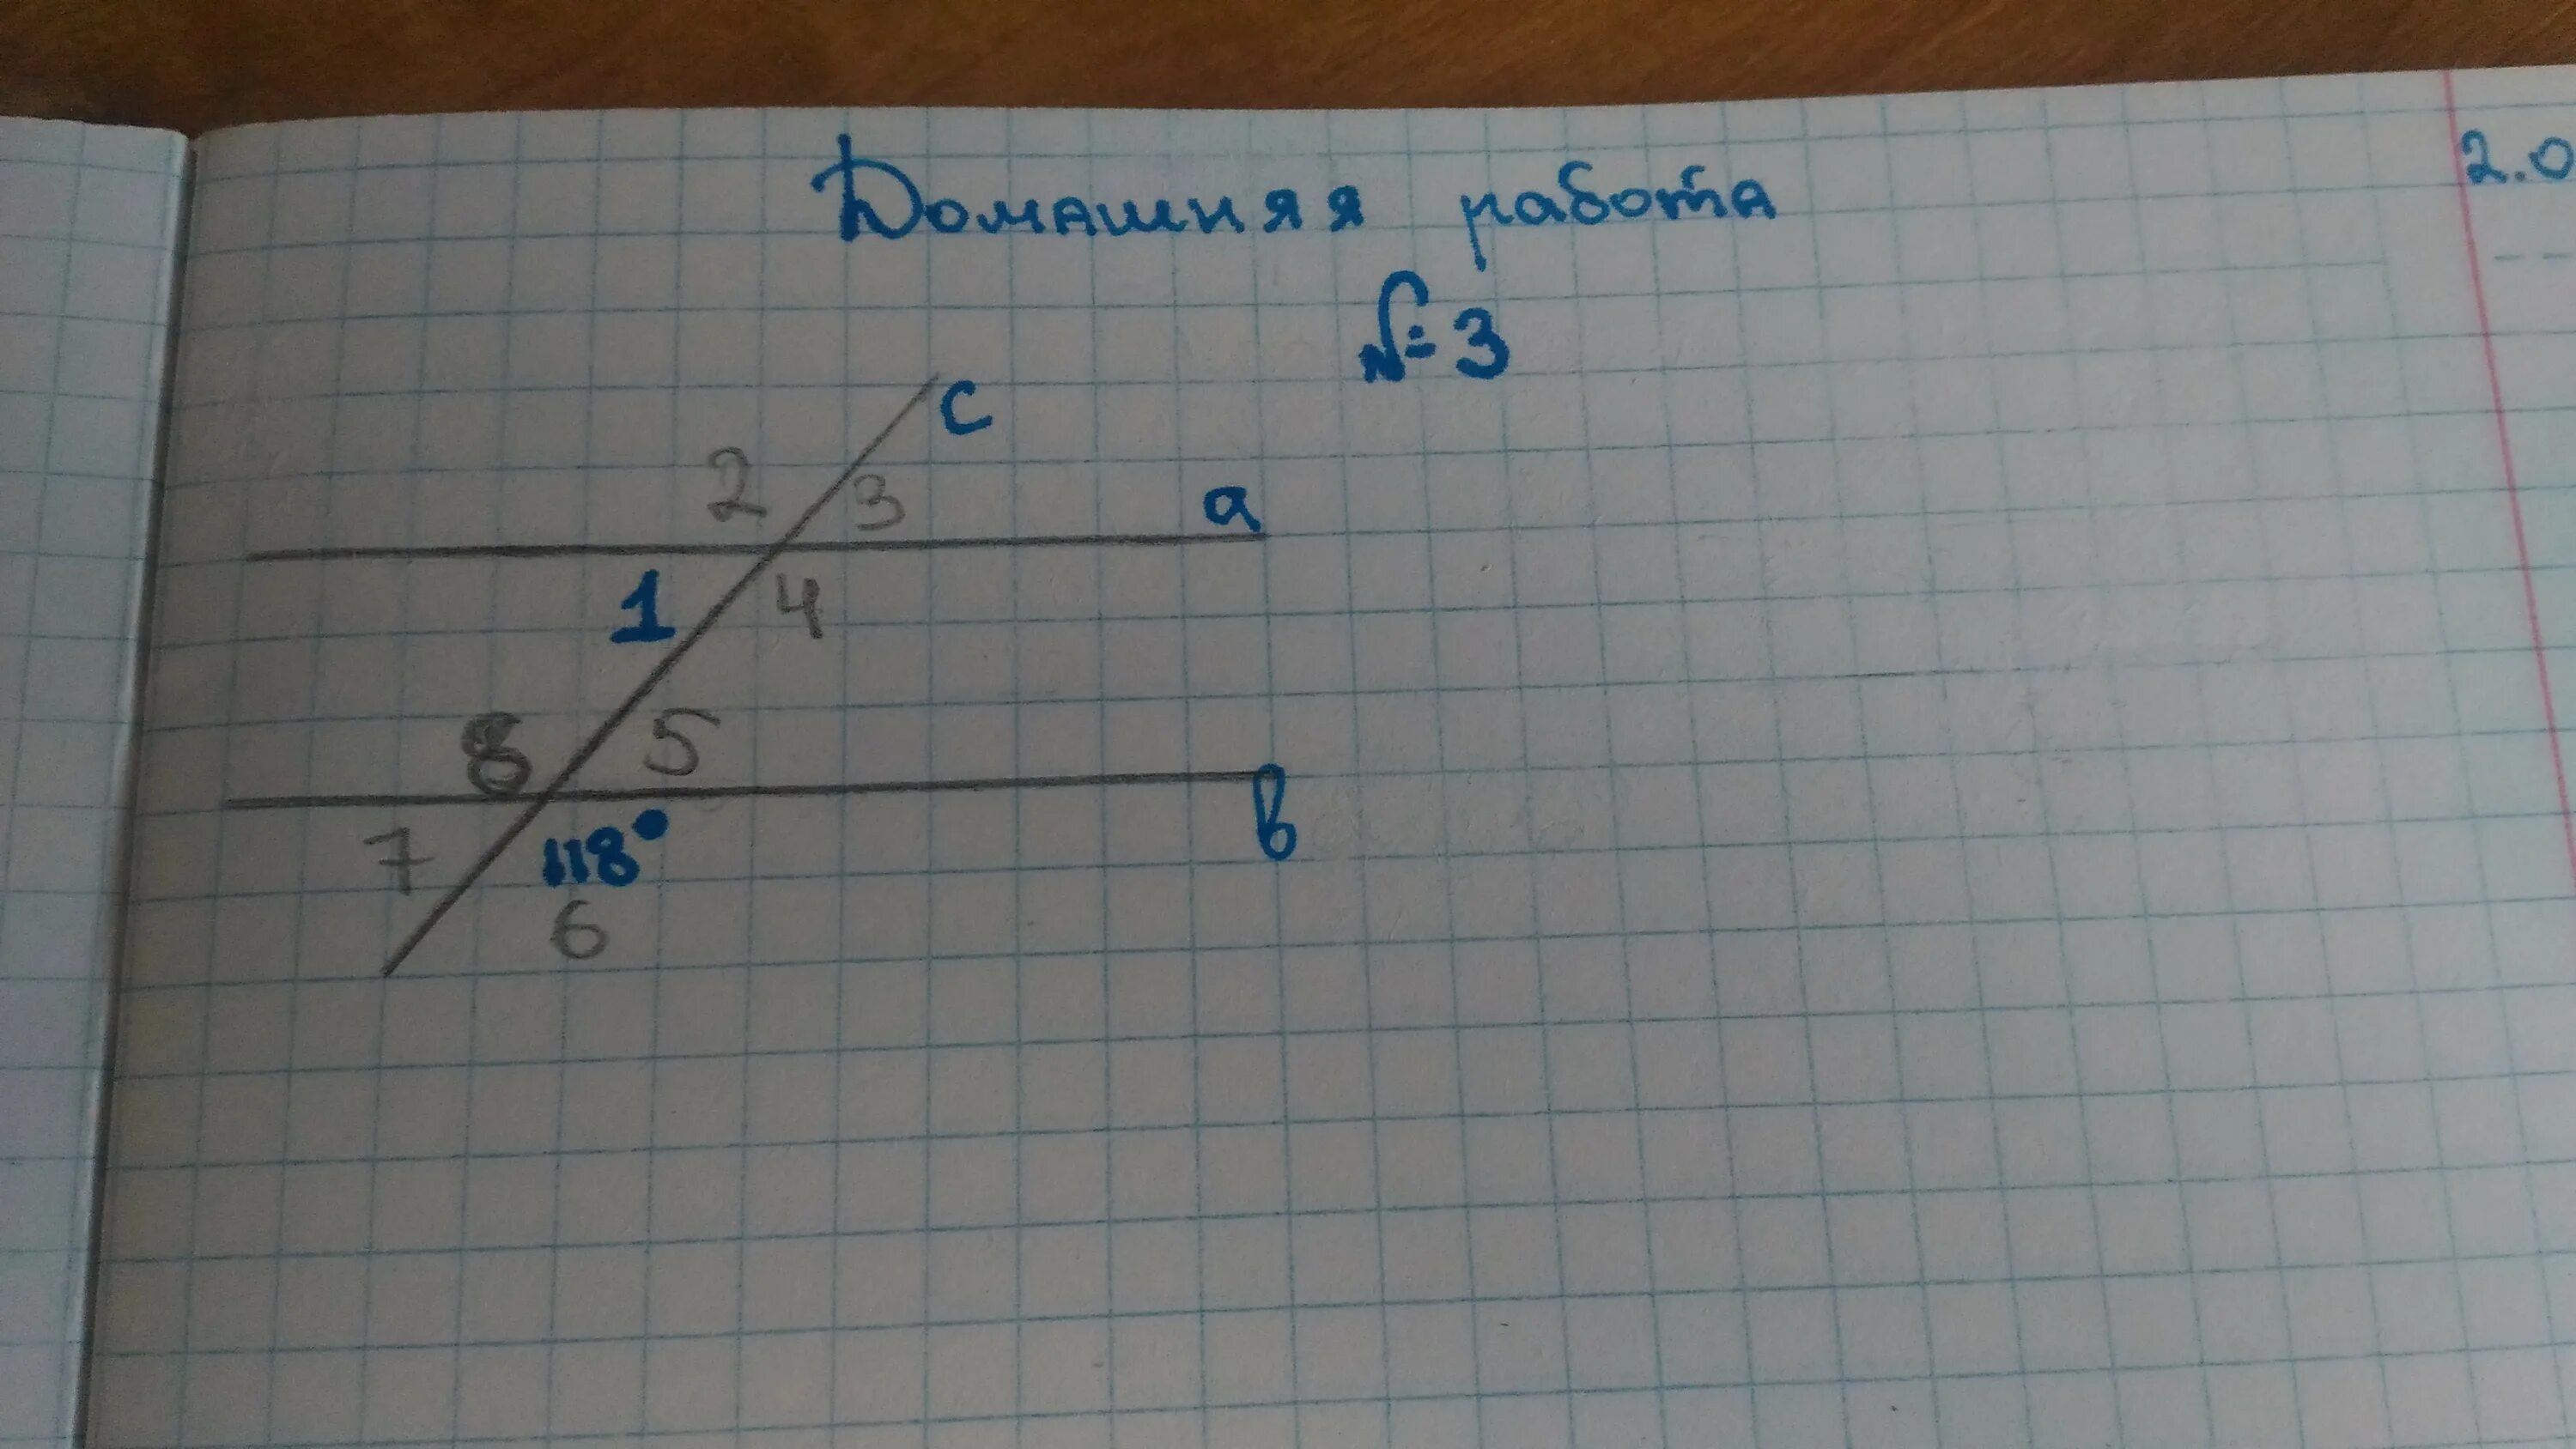 Домашняя работа
2.0
№3
c
2 3
a
1 4
8 5
в
7 118°
6